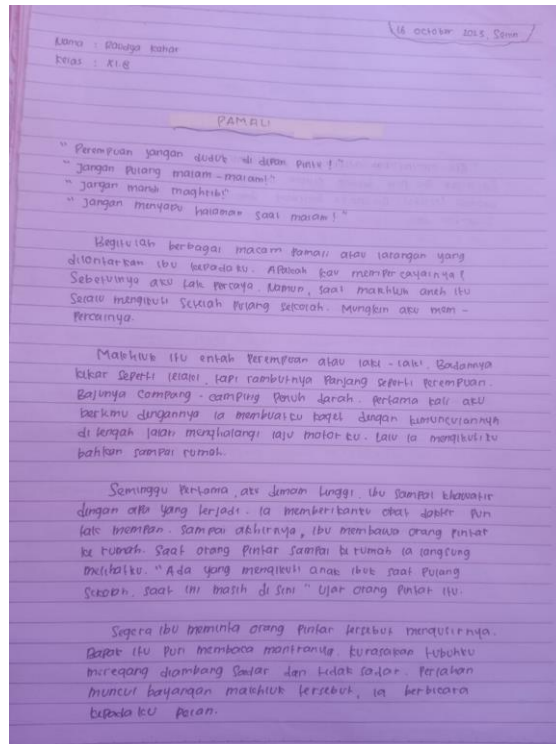 16 October 2023, Senin
Nama : Daudya Kahar
Kelas : XI.8
PAMALI
" Perempuan jangan duduk di depan Pintu ! "
" Jangan Pulang malam-malam!"
" Jangan mandi maghrib!"
" Jangan menyapu halaman saat malam ! "
Begitulah berbagai macam Pamali atau larangan yang
dilontarkan ibu kepadaku. Apakah kau mempercayainya?
Sebetulnya aku tak percaya. Namun, saat makhluk aneh itu
Selalu mengikuti setelah Pulang sekolah. Mungkin aku mem-
Percainya.
Makhluk itu entah Perempuan atau laki-laki. Badannya
kekar seperti lelaki, tapi rambutnya Panjang seperti Perempuan.
Bajunya Compang-camping Penuh darah. Pertama kali aku
bertemu dengannya ia membuatku kaget dengan kemunculannya
di tengah jalan menghalangi laju motorku. Lalu ia mengikutiku
bahkan sampai rumah.
Seminggu Pertama, aku demam tinggi, ibu sampai khawatir
dengan apa yang terjadi. Ia memberikanku obat dokter pun
tak mempan. Sampai akhirnya, ibu membawa orang Pintar
ke rumah. Saat orang Pintar sampai ke rumah ia langsung
melihatku. "Ada yang mengikuti anak ibuk saat Pulang
Sekolah, saat ini masih di sini " Ujar orang Pintar itu.
Segera ibu meminta orang Pintar tersebut mengusirnya.
Bapak itu pun membaca mantranya. kurasakan tubuhku
miregang diambang Sadar dan tidak sadar. Perlahan
muncul bayangan makhluk tersebut, ia berbicara
kepada ku Pelan.